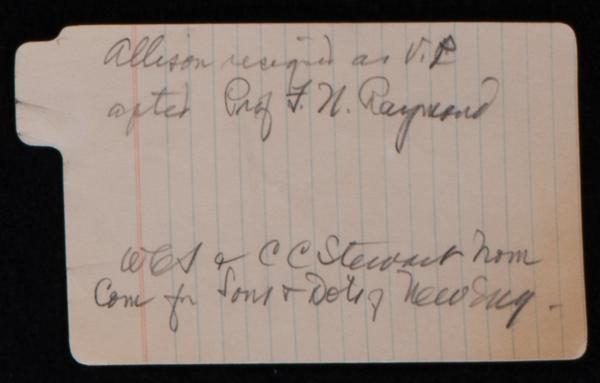 Allison resigned as V.P
after Prof F. N. Raymond
WCS & C C Stewart Nom
Com for Sons & Dots of New Eng.